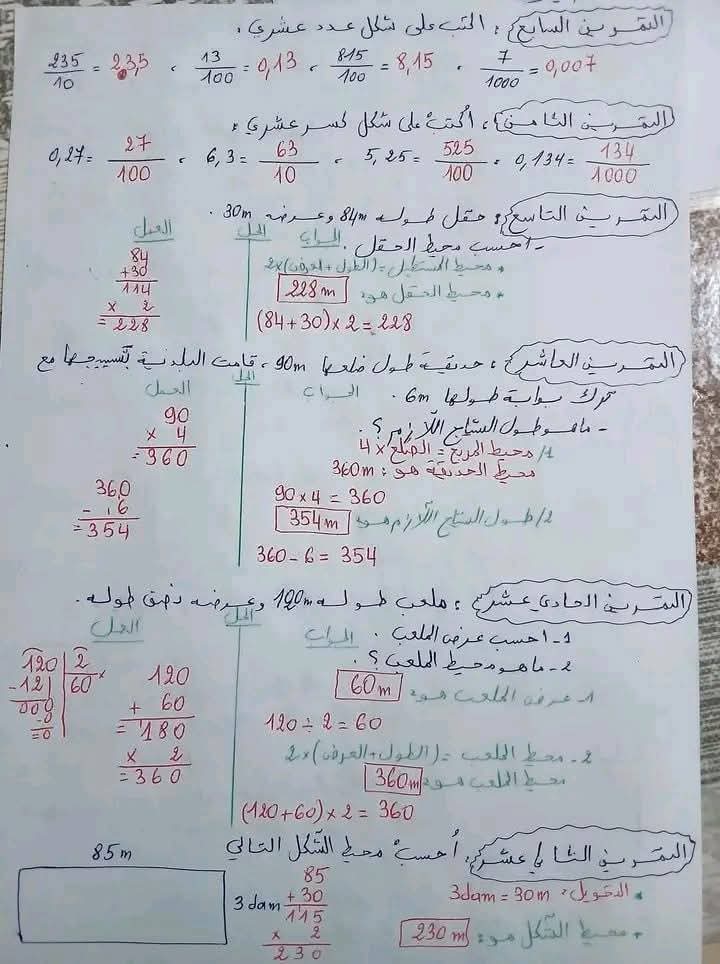 التمرين السابع: اكتب على شكل عدد عشري:
235/10 = 23,5 ، 13/100 = 0,13 ، 815/100 = 8,15 ، 7/1000 = 0,007
التمرين الثامن: أكتب على شكل كسر عشري:
0,27 = 27/100 ، 6,3 = 63/10 ، 5,25 = 525/100 ، 0,134 = 134/1000
التمرين التاسع: حقل طوله 84m وعرضه 30m.
- احسب محيط الحقل.
الجواب الحل العمل
• محيط المستطيل = (الطول + العرض) × 2
• محيط الحقل هو: 228m
(84 + 30) × 2 = 228
84
+30
114
× 2
= 228
التمرين العاشر: حديقة طول ضلعها 90m، قامت البلدية بتسييجها مع
ترك بوابة طولها 6m.
الجواب الحل العمل
- ما هو طول السياج اللازم؟
1/ محيط المربع = الضلع × 4
محيط الحديقة هو: 360m
90 × 4 = 360
2/ طول السياج اللازم هو: 354m
360 - 6 = 354
90
× 4
= 360
360
- 6
= 354
التمرين الحادي عشر: ملعب طوله 120m وعرضه نصف طوله.
الجواب الحل العمل
1- احسب عرض الملعب.
2- ما هو محيط الملعب؟
1- عرض الملعب هو: 60m
120 ÷ 2 = 60
2- محيط الملعب = (الطول + العرض) × 2
محيط الملعب هو: 360m
(120 + 60) × 2 = 360
120 2
-12 60
000
-0
=0
120
+ 60
= 180
× 2
= 360
التمرين الثاني عشر: أحسب محيط الشكل التالي
85m
3 dam
• التحويل: 3dam = 30m
• محيط الشكل هو: 230m
85
+30
115
× 2
230